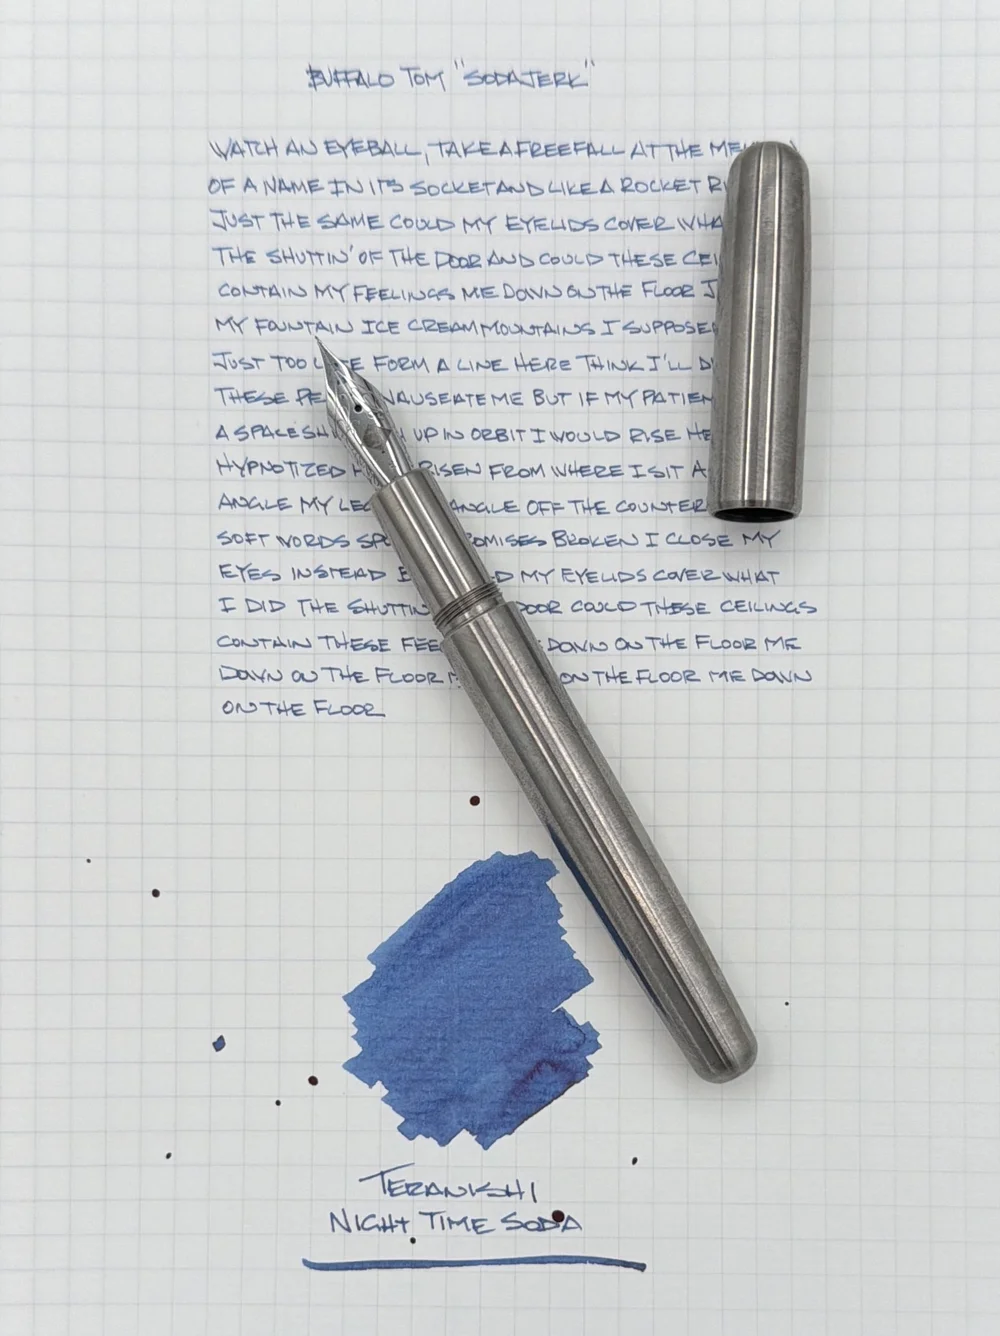 BUFFALO TOM "SODAJERK"
WATCH AN EYEBALL, TAKE A FREEFALL AT THE
OF A NAME IN IT'S SOCKET AND LIKE A ROCKET
JUST THE SAME COULD MY EYELIDS COVER
THE SHUTTIN' OF THE DOOR AND COULD THESE
CONTAIN MY FEELINGS ME DOWN ON THE FLOOR
MY FOUNTAIN ICE CREAM MOUNTAINS I SUPPOSE
JUST TOO FORM A LINE HERE THINK I'LL
THESE NAUSEATE ME BUT IF MY
A UP IN ORBIT I WOULD RISE
HYPNOTIZED RISEN FROM WHERE I SIT
ANGLE MY OFF THE COUNTER
SOFT WORDS BROKEN I CLOSE MY
EYES INSTEAD MY EYELIDS COVER WHAT
I DID THE SHUTTIN DOOR COULD THESE CEILINGS
CONTAIN THESE DOWN ON THE FLOOR ME
DOWN ON THE FLOOR ON THE FLOOR ME DOWN
ON THE FLOOR
TERANISHI
NIGHT TIME SODA